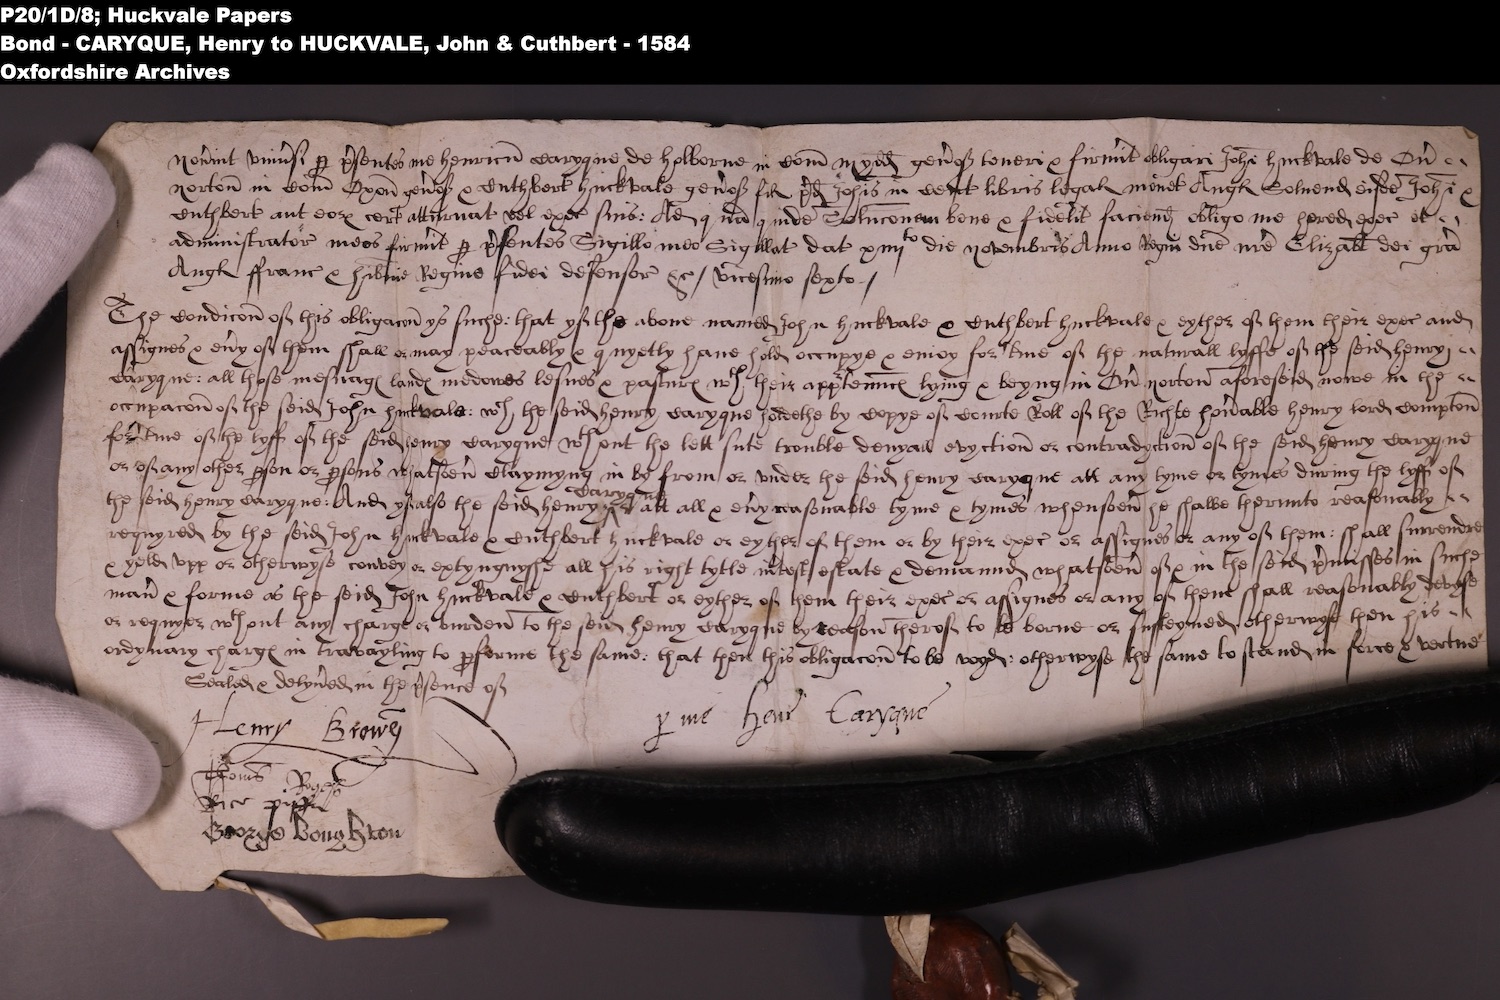 P20/1D/8; Huckvale Papers
Bond - CARYQUE, Henry to HUCKVALE, John & Cuthbert - 1584
Oxfordshire Archives
Nov̄int univ̄si p p̄sentes me henricū Caryque de holborne in Com̄ Mydd gen̄os teneri & firmit obligari Joh̄i huckvale de Ov̄
norton in Com̄ Oxon̄ gen̄os & Cuthbert huckvale gen̄os fil p̄d Joh̄is in Cent libris legal monet Angl Solvend eisde Joh̄i &
Cuthbert aut eor cert attornat vel exec suis: Ad q̄ ndē Soluc̄onem bene & fidelit faciend obligo me hered exec et
administrator meos firmit p p̄sentes Sigillo meo Sigillat dat xiiiito die novembris Anno Regni dn̄e nr̄e Elizabt dei gr̄a
Angl ffranc & hib̄nie Regine fidei defensor &c/ vicesimo sexto./
The Condic̄on of this obligac̄on ys suche: that yf the above named John huckvale & Cuthbert huckvale & eyther of them their exec and
assignes & ev̄y of them shall or may peaceably & quyetly have hold occupye & enioy for tme of the naturall lyffe of the seid henry
Caryque: all those mesuag land medowes lesues & pastur wth their apptennc lying & beyng in Ov̄ norton aforeseid nowe in the
occupac̄on of the seid John huckvale: wch the seid henry Caryque holdethe by Copye of Courte Roll of the Righte hon̄able henry lord Compton
for tme of the lyff of the seid henry Caryque wthout the lett sute trouble denyall evyction or contradyction of the seid henry Caryque
or of any other pson or psons whatsoev̄ Claymyng in by from or under the seid henry Caryque att any tyme or tymes during the lyff of
the seid henry Caryque: And yf also the seid henry Caryque att all & ev̄y reasonable tyme & tymes whensoev̄ he shalbe therunto reasonably
requyred by the seid John huckvale & Cuthbert huckvale or eyther of them or by their exec or assignes or any of them: shall surrendre
& yeld upp or otherwyse convey or extynguyshe all his right tytle int̄est estate & demaund whatsoev̄ of & in the seid p̄misses in suche
man̄ & forme as the seid John huckvale & Cuthbert or eyther of them their exec or assignes or any of them shall reasonably devyse
or requyer wthout any charge or burden to the seid henry Caryque by reason therof to be borne or susteyned otherwyse then his
ordynary charg in travayling to pforme the same: that then this obligac̄on to be voyd: otherwyse the same to stand in force & vertue
Sealed & delyv̄ed in the p̄sence of
p me henr Caryque
Henry Brown
Thoms Rogers
Rice
George Boughton